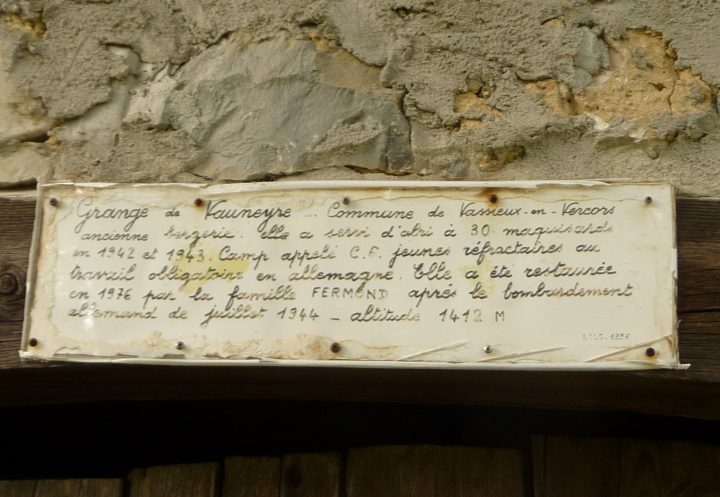 Grange de Vauneyre _ Commune de Vassieux-en-Vercors
ancienne bergerie. elle a servi d'abri à 30 maquisards
en 1942 et 1943. Camp appelé C.6. jeunes réfractaires au
travail obligatoire en allemagne. Elle a été restaurée
en 1976 par la famille FERMOND après le bombardement
allemand de juillet 1944 _ altitude 1412 M
1996